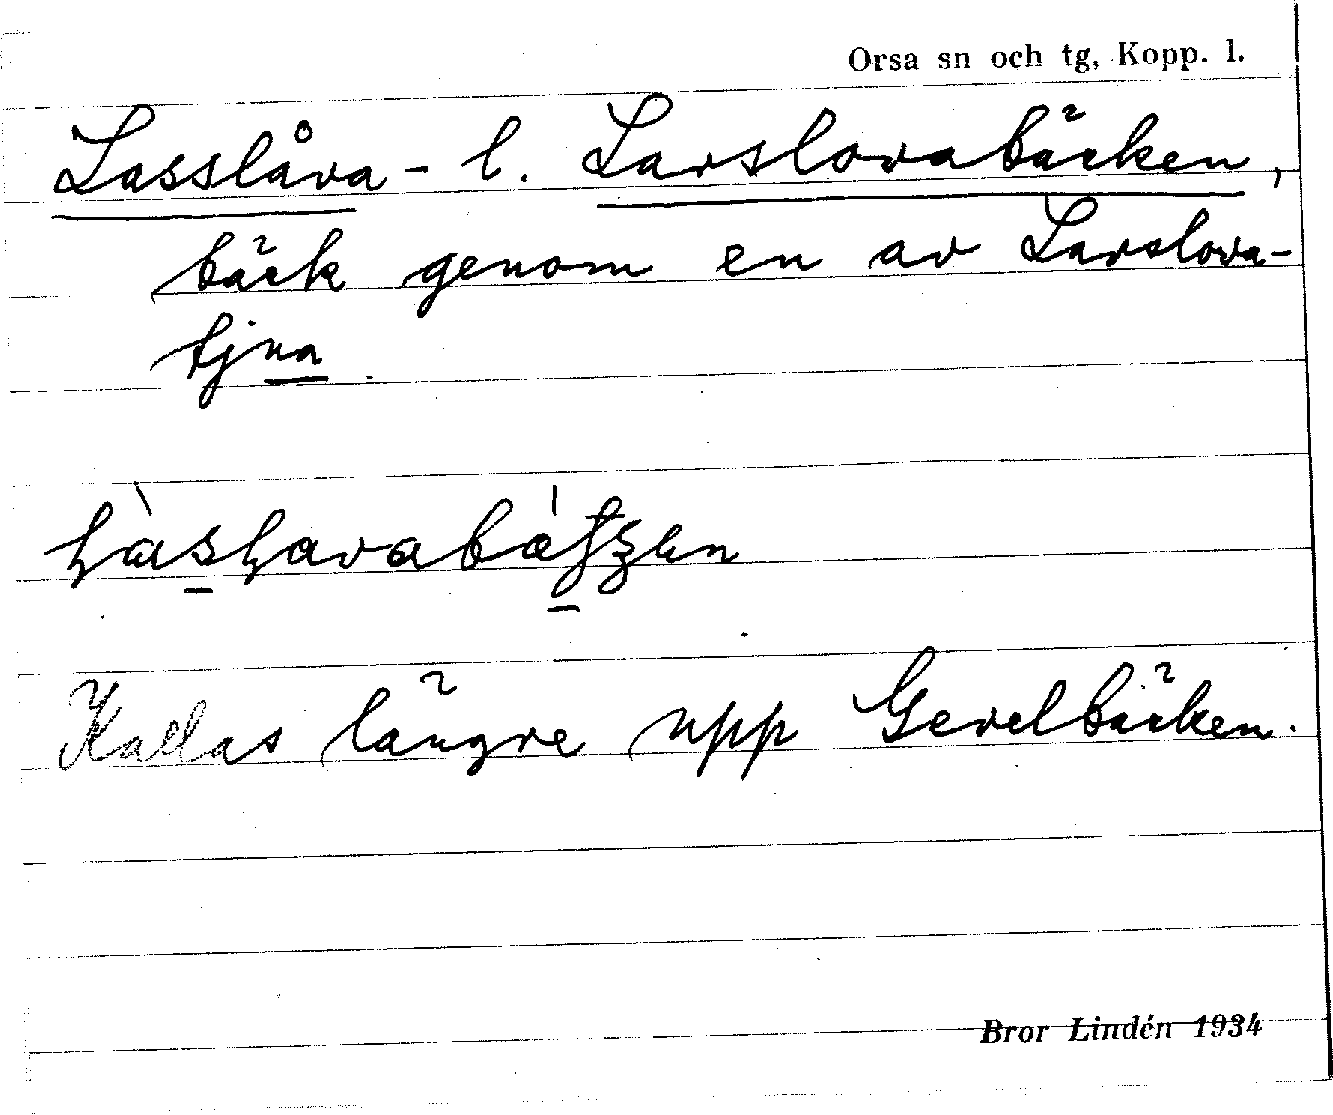 Orsa sn och tg, Kopp. l.
Lasslåva- l. Larslovabäcken,
bäck genom en av Larslova-
tjna.
Kallas längre upp Gevelbäcken.
Bror Lindén 1934